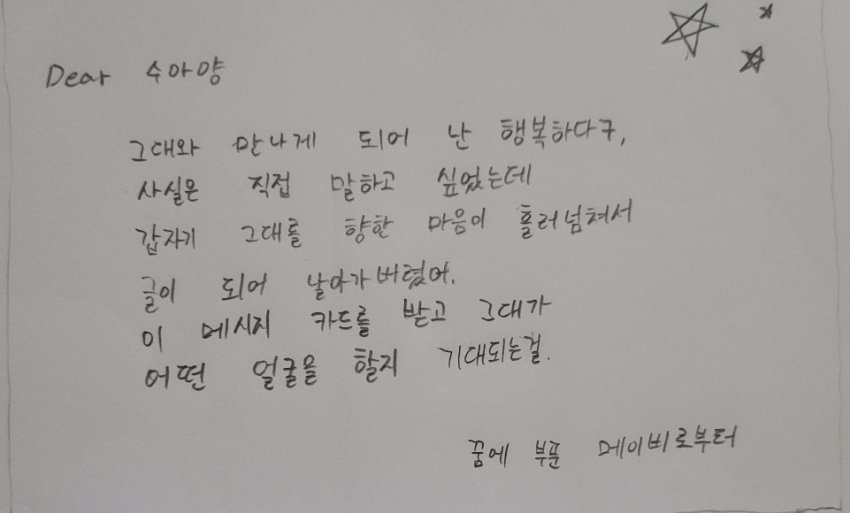 Dear 수아양
그대와 만나게 되어 난 행복하다구,
사실은 직접 말하고 싶었는데
갑자기 그대를 향한 마음이 흘러넘쳐서
글이 되어 날아가버렸어.
이 메시지 카드를 받고 그대가
어떤 얼굴을 할지 기대되는걸.
꿈에 부푼 메이비로부터